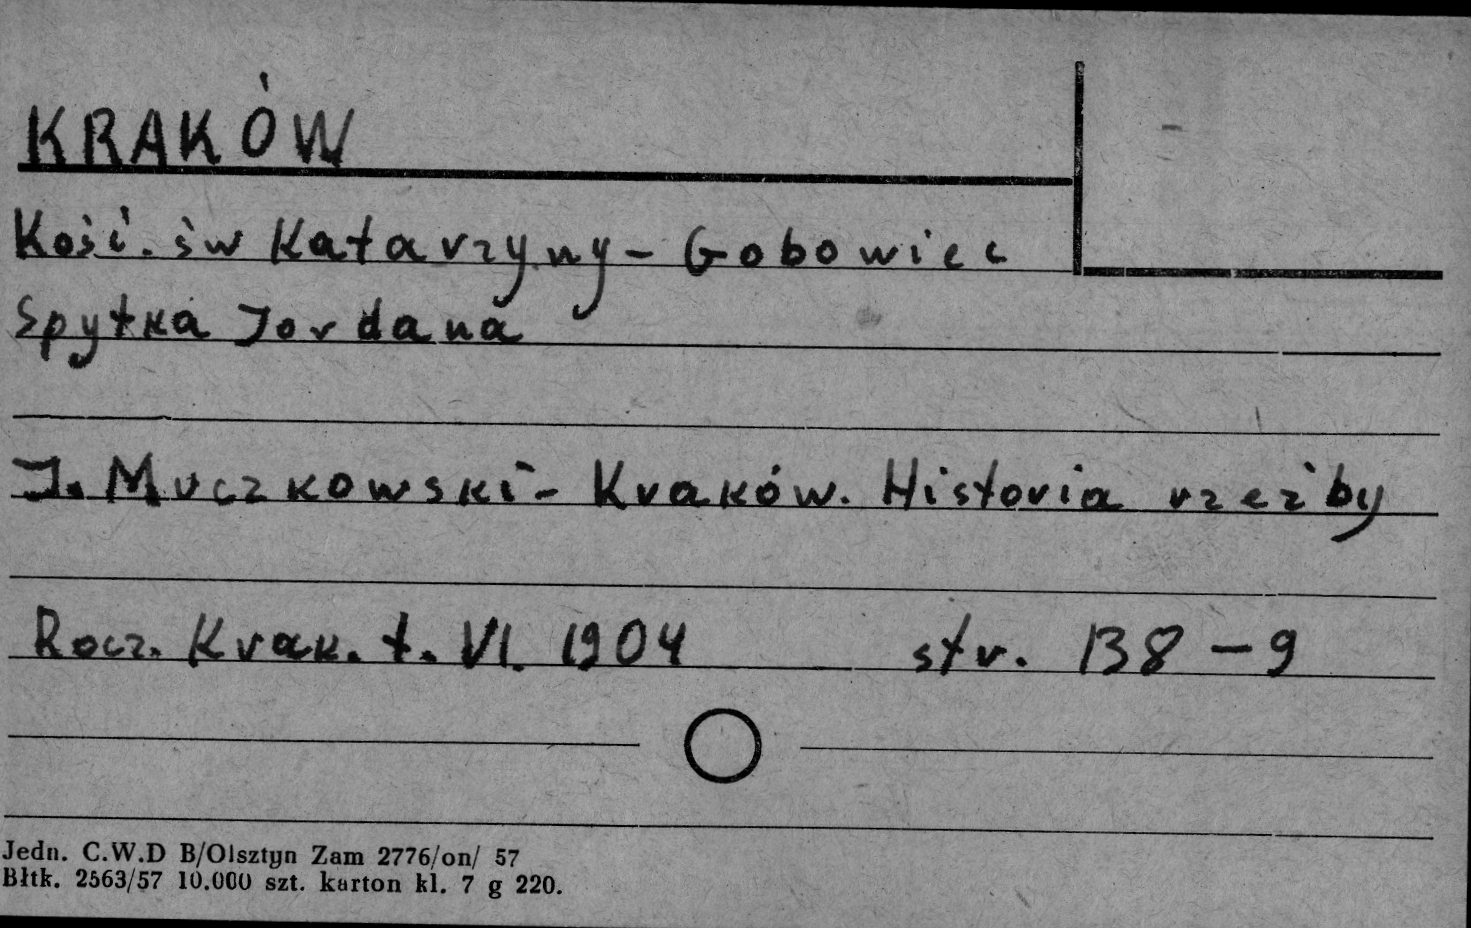 KRAKÓW
Kość. św Katarzyny - Gobowiec
Spytka Jordana
J. Muczkowski - Kraków. Historia rzeźby
Rocz. Krak. t. VI. 1904 str. 138-9
Jedn. C.W.D B/Olsztyn Zam 2776/on/ 57
Błtk. 2563/57 10.000 szt. karton kl. 7 g 220.